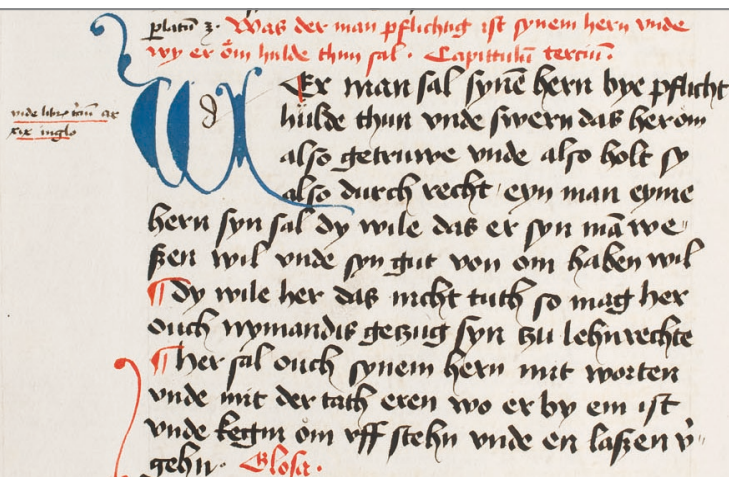 platū ꝫ. Was der man pflichtig ist synem hern vnde
wy er ōm hulde thun sal. Capittulū terciū.
vnde libro
xix in glo
Er man sal synē hern bye pflicht
hulde thun vnde swern das her om
also getruwe vnde also holt sy
also durch recht eyn man eyme
hern syn sal dy wile das er syn mā we-
ßen wil vnde syn gut von om haben wil
¶ Dy wile her das nicht tuth so mag her
ouch nymandis geczug syn czu lehnrechte
¶ her sal ouch synem hern mit worten
vnde mit der tath eren wo er by em ist
vnde kegin om vff stehn vnde en laßen v̄-
gehn. Glosa.